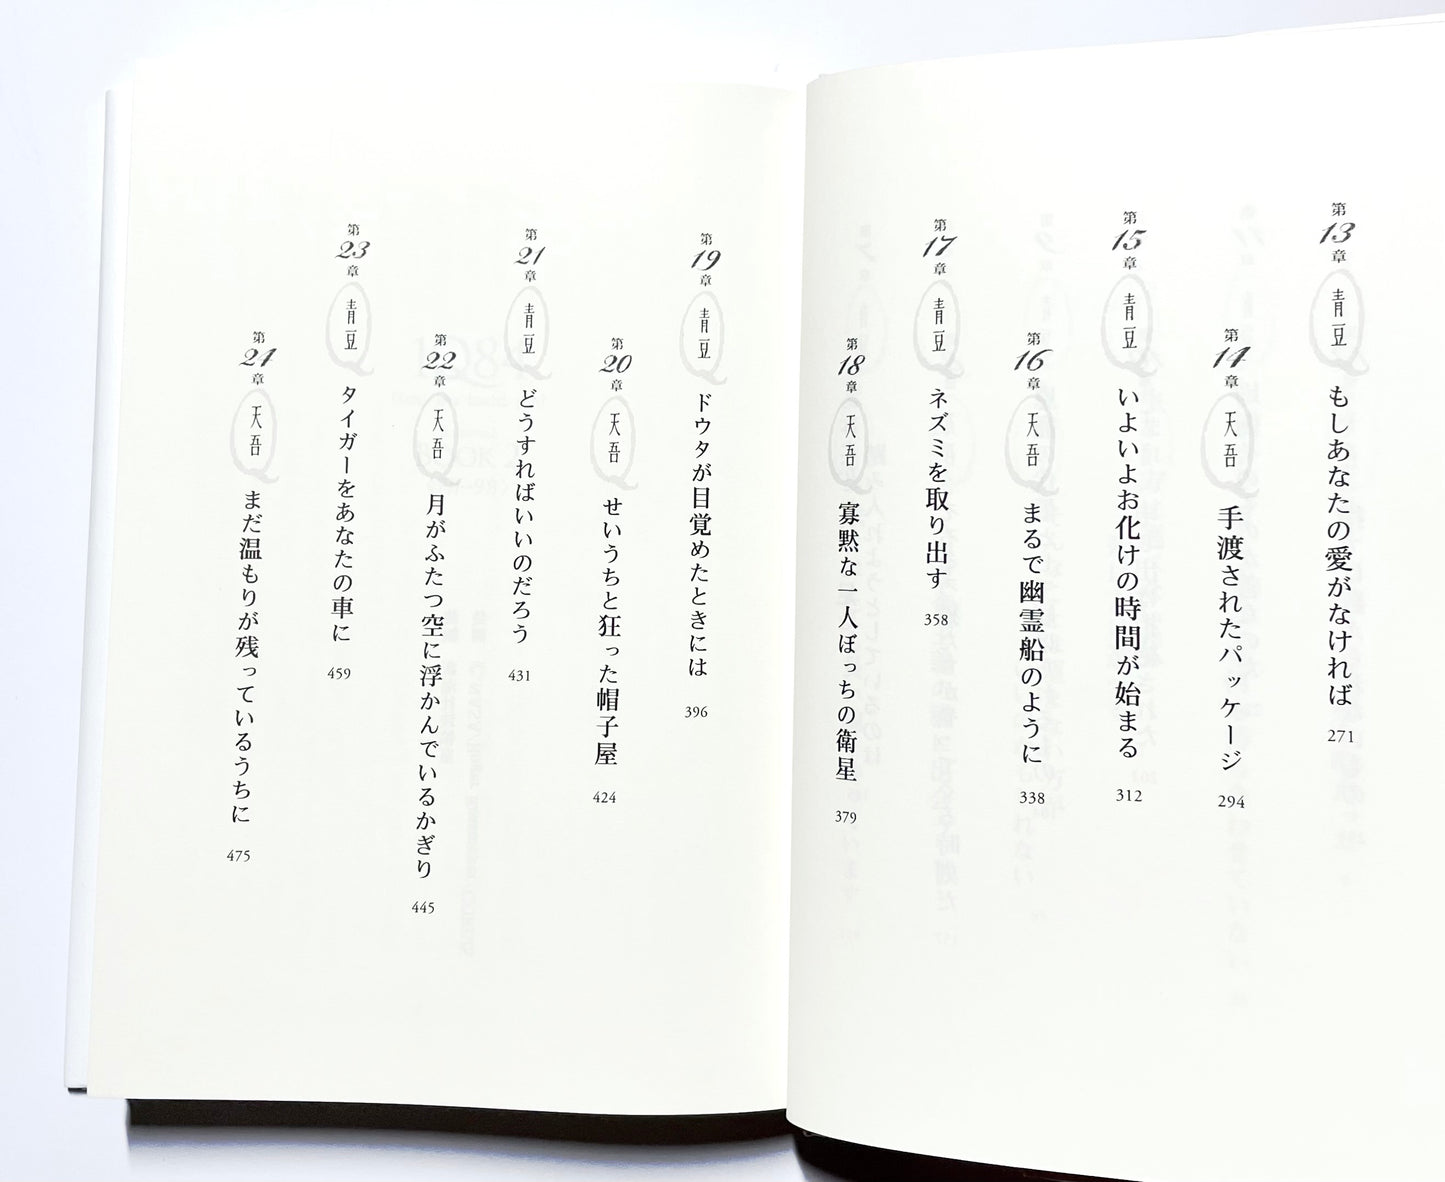 第13章 青豆 もしあなたの愛がなければ 271
第14章 天吾 手渡されたパッケージ 294
第15章 青豆 いよいよお化けの時間が始まる 312
第16章 天吾 まるで幽霊船のように 338
第17章 青豆 ネズミを取り出す 358
第18章 天吾 寡黙な一人ぼっちの衛星 379
第19章 青豆 ドウタが目覚めたときには 396
第20章 天吾 せいうちと狂った帽子屋 424
第21章 青豆 どうすればいいのだろう 431
第22章 天吾 月がふたつ空に浮かんでいるかぎり 445
第23章 青豆 タイガーをあなたの車に 459
第24章 天吾 まだ温もりが残っているうちに 475